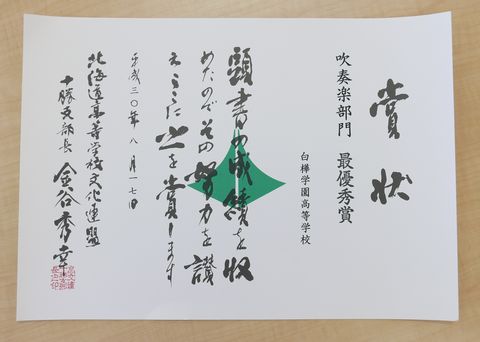 賞状
吹奏楽部門 最優秀賞
白樺学園高等学校
頭書の成績を収
めたのでその努力を讃
えここに之を賞します
平成三〇年八月一七日
北海道高等学校文化連盟
十勝支部長 金谷秀幸